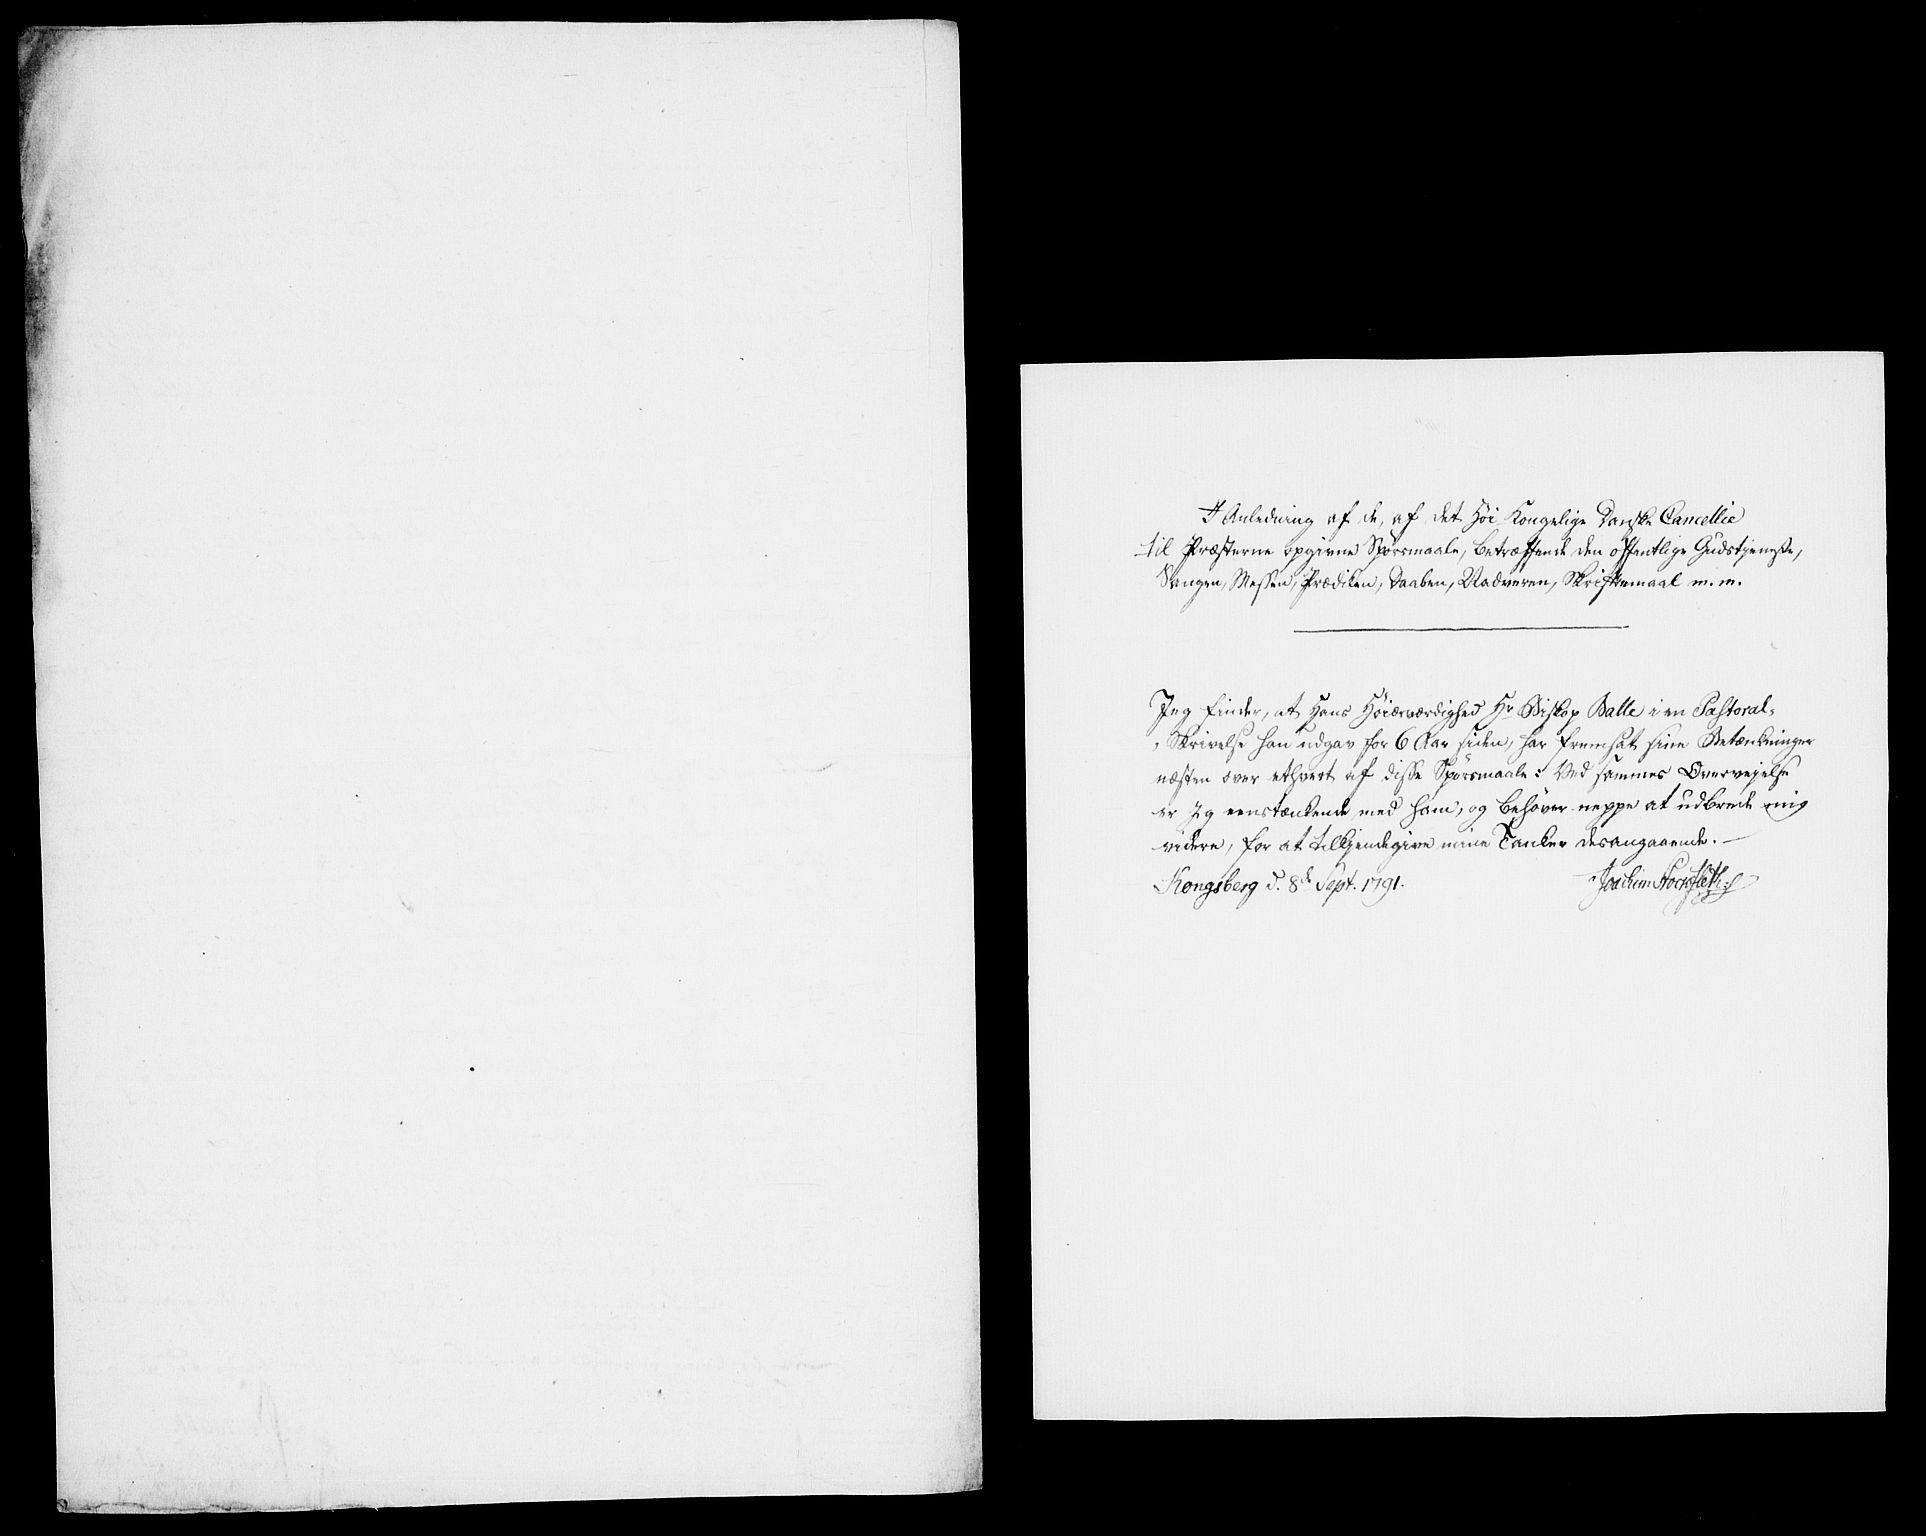 I Anledning af de, af det Höi Kongelige Danske Cancellie
til Præsterne opgivne Spörsmaale, betræffende den offentlige Gudstjeneste,
Sangen, Messen, Prædiken, Daaben, Nadveren, Skriftemaal m. m.
Jeg finder, at Hans Höiærværdighed Hr Biskop Balle i en Pastoral-
-Skrivelse han udgav for 6 Aar siden, har fremsat sine Betænkninger
næsten over ethvert af disse Spörsmaale: Ved sammes Overvejelse
er Jeg eenstænkende med ham, og behöver neppe at udbrede mig
videre, for at tilkjendegive mine Tanker desangaaende. —
Kongsberg d. 8de Sept. 1791.
Joachim Stockfleth